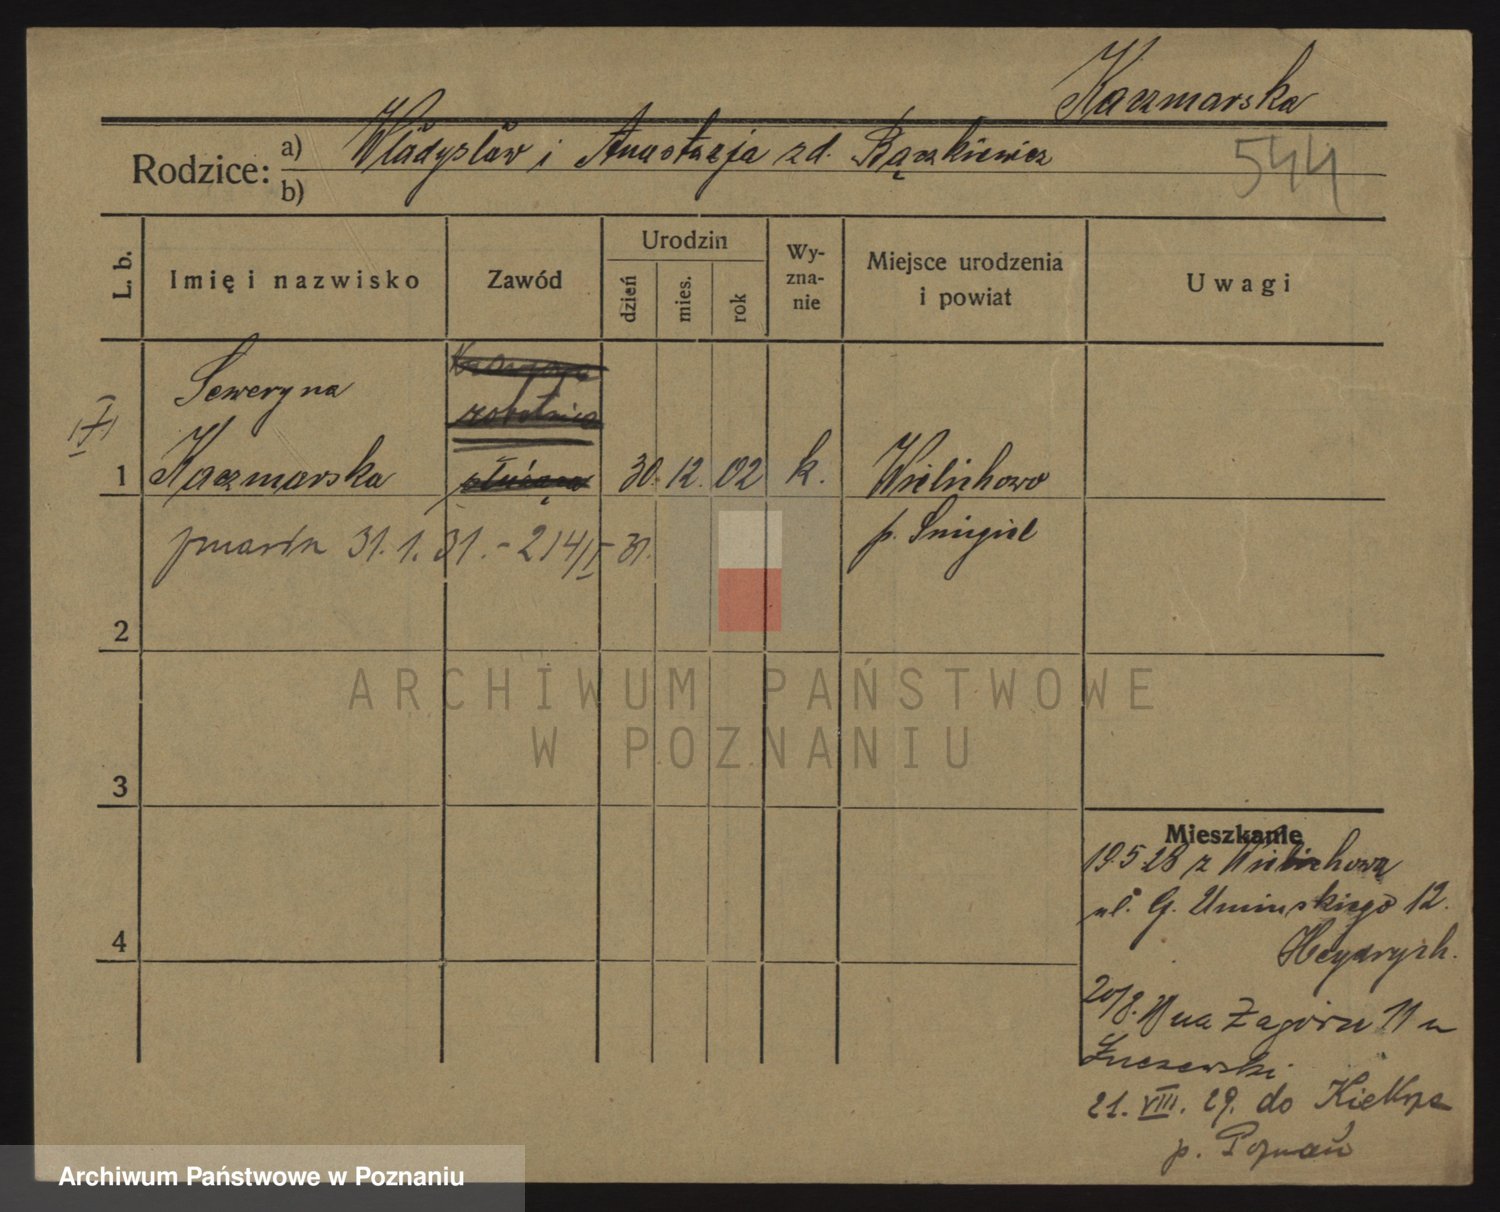 Kaczmarska
Rodzice: a) Władysław i Anastazja zd. Bączkiewicz
b)
544
L. b.
Imię i nazwisko
Zawód
Urodzin
dzień
mies.
rok
Wy-
zna-
nie
Miejsce urodzenia
i powiat
Uwagi
Seweryna
robotnica
1 Kaczmarska służąca 30. 12. 02 k. Wielichowo
p. Śmigiel
zmarła 31. 1. 31. - 214/II - 31.
2
ARCHIWUM PAŃSTWOWE
W POZNANIU
3
Mieszkanie
19.5.28 z Wielichowa
ul. G. Umińskiego 12.
4
Heydrych.
20/8. na Zagórze 11 u
21. VIII. 29. do Kiekrza
p. Poznań
Archiwum Państwowe w Poznaniu